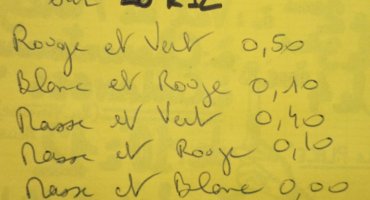 sur
Rouge et Vert 0,50
Blanc et Rouge 0,10
Masse et Vert 0,40
Masse et Rouge 0,10
Masse et Blanc 0,00